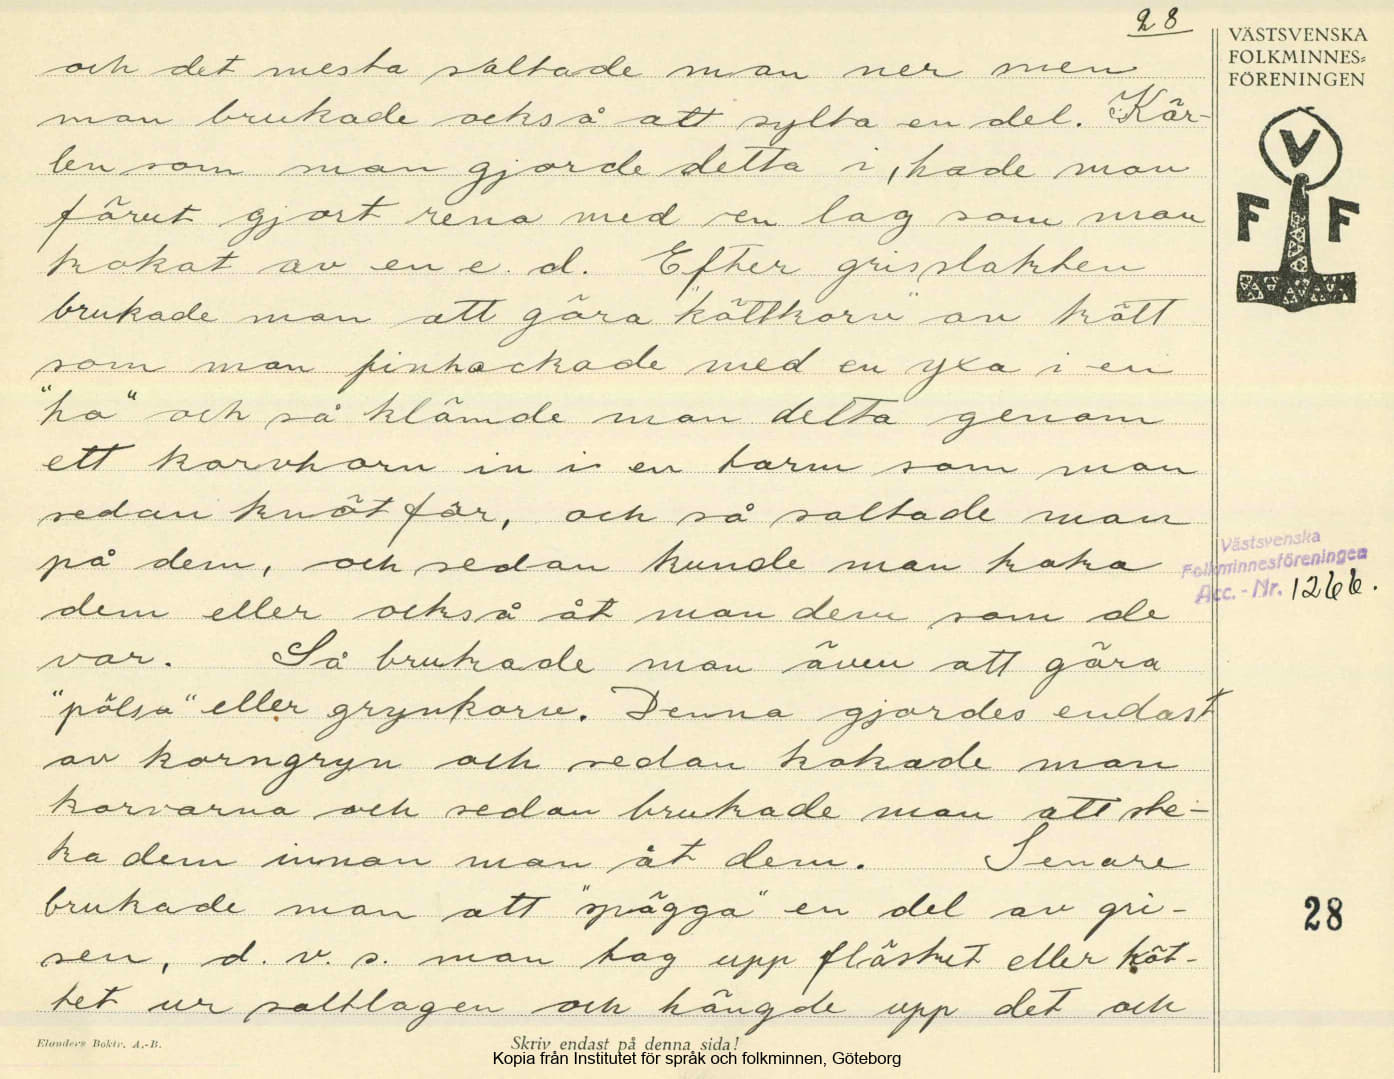 28
VÄSTSVENSKA
FOLKMINNES=
FÖRENINGEN
V
F F
och det mesta saltade man ner men
man brukade också att sylta en del. Kär-
len som man gjorde detta i, hade man
förut gjort rena med en lag som man
kokat av en e. d. Efter grisslakten
brukade man att göra "köttkorv" av kött
som man finhackade med en yxa i en
"ho" och så klämde man detta genom
ett korvhorn in i en tarm som man
sedan knöt för, och så saltade man
på dem, och sedan kunde man koka
dem eller också åt man dem som de
var. Så brukade man även att göra
"pölsa" eller grynkorv. Denna gjordes endast
av korngryn och sedan kokade man
korvarna och sedan brukade man att ste-
ka dem innan man åt dem. Senare
brukade man att "spägga" en del av gri-
sen, d. v. s. man tog upp fläsket eller köt-
tet ur saltlagen och hängde upp det och
Västsvenska
Folkminnesföreningen
Acc. - Nr. 1266.
28
Elanders Boktr. A.-B.
Skriv endast på denna sida!
Kopia från Institutet för språk och folkminnen, Göteborg